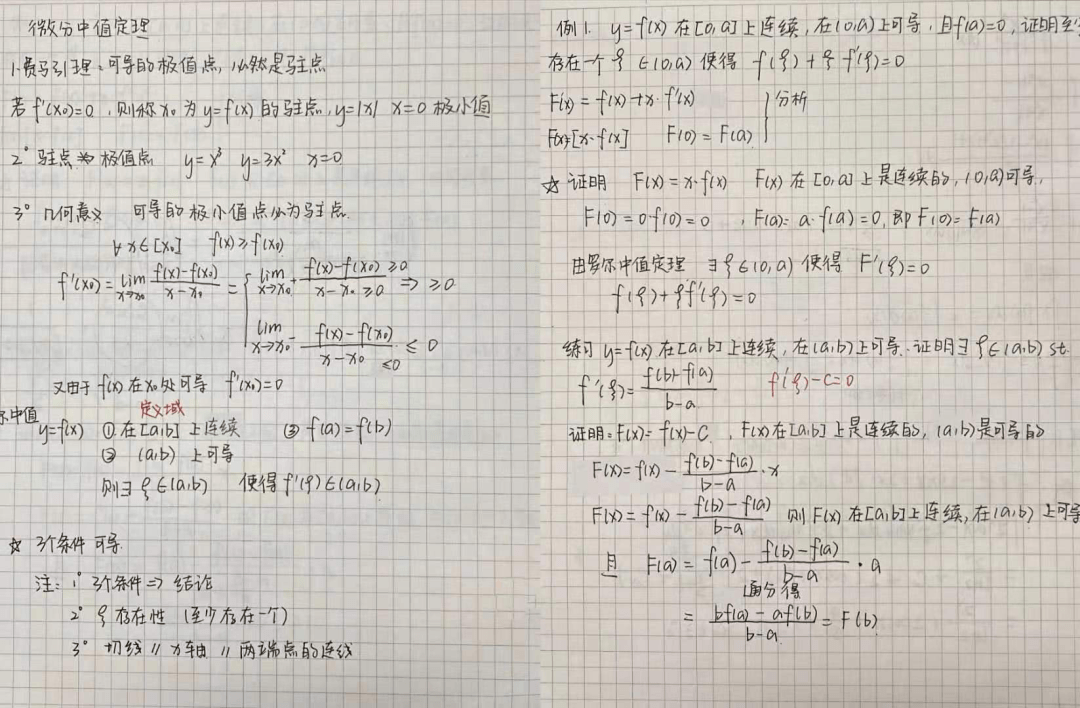 微分中值定理
1.费马引理:可导的极值点,必然是驻点
若 f'(x₀)=0,则称 x₀ 为 y=f(x) 的驻点, y=|x| x=0 极小值
2° 驻点 ⇏ 极值点 y=x³ y=3x² x=0
3° 几何意义 可导的极小值点必为驻点.
∀x∈[x₀] f(x)≥f(x₀)
f'(x₀)=lim x→x₀ (f(x)-f(x₀))/(x-x₀) = { lim x→x₀⁺ (f(x)-f(x₀) ≥0)/(x-x₀ ≥0) ⇒ ≥0
lim x→x₀⁻ (f(x)-f(x₀))/(x-x₀ ≤0) ≤ 0
又由于 f(x) 在 x₀ 处可导 f'(x₀)=0
定义域
尔中值 y=f(x) ①在[a,b]上连续 ③ f(a)=f(b)
② (a,b) 上可导
则∃ ξ∈(a,b) 使得 f'(ξ)∈(a,b)
☆ 3个条件 可导.
注: 1° 3个条件⇒ 结论
2° ξ 存在性 (至少存在一个)
3° 切线 // x轴 // 两端点的连线
例1. y=f(x) 在[0,a]上连续,在(0,a)上可导,且f(a)=0,证明至少
存在一个 ξ ∈(0,a) 使得 f(ξ)+ξ f'(ξ)=0
F'(x) = f(x)+x·f'(x) } 分析
F(x)=[x·f(x)] F(0)=F(a)
☆ 证明 F(x)=x·f(x) F(x) 在[0,a]上是连续的, (0,a)可导,
F(0)=0·f(0)=0 , F(a)=a·f(a)=0,即F(0)=F(a)
由罗尔中值定理 ∃ξ∈(0,a) 使得 F'(ξ)=0
f(ξ)+ξf'(ξ)=0
练习 y=f(x)在[a,b]上连续,在(a,b)上可导.证明∃ ξ∈(a,b) st.
f'(ξ)=(f(b)+f(a))/(b-a) f'(ξ)-C=0
证明:F(x)=f(x)-C , F(x)在[a,b]上是连续的, (a,b)是可导的
F(x)=f(x)-(f(b)-f(a))/(b-a)·x
F(x)=f(x)-(f(b)-f(a))/(b-a) 则F(x)在[a,b]上连续,在(a,b)上可导
且 F(a)=f(a)-(f(b)-f(a))/(b-a)·a
通分得
=(bf(a)-af(b))/(b-a)=F(b)